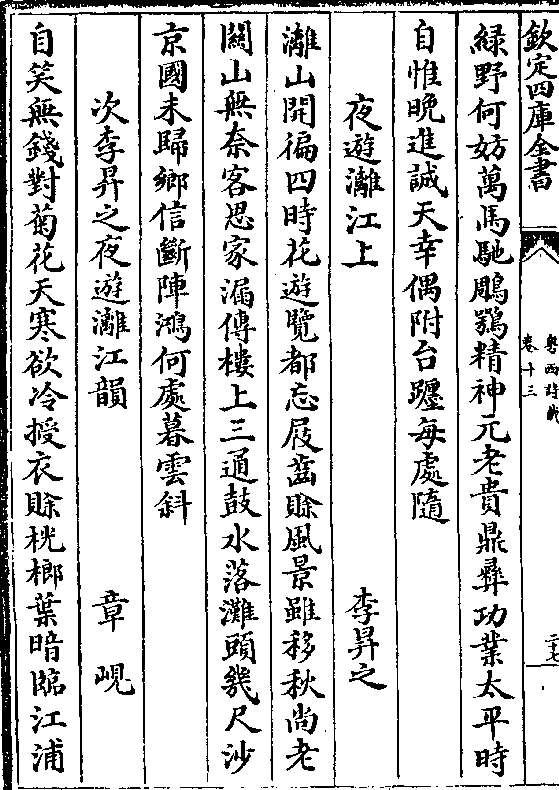 欽定四庫全書
粤西詩載
卷十三
二十七
緑野何妨萬馬馳鵰鶚精神元老貴鼎彞功業太平時
自惟晚進誠天幸偶附台躔每處隨
夜遊灕江上　李昇之
灕山開徧四時花遊覽都忘屐齒賖風景雖移秋尚老
關山無奈客思家漏傳樓上三通鼓水落灘頭幾尺沙
京國未歸鄉信斷陣鴻何處暮雲斜
次李昇之夜遊灕江韻　章峴
自笑無錢對菊花天寒欲冷授衣賖桄榔葉暗臨江浦